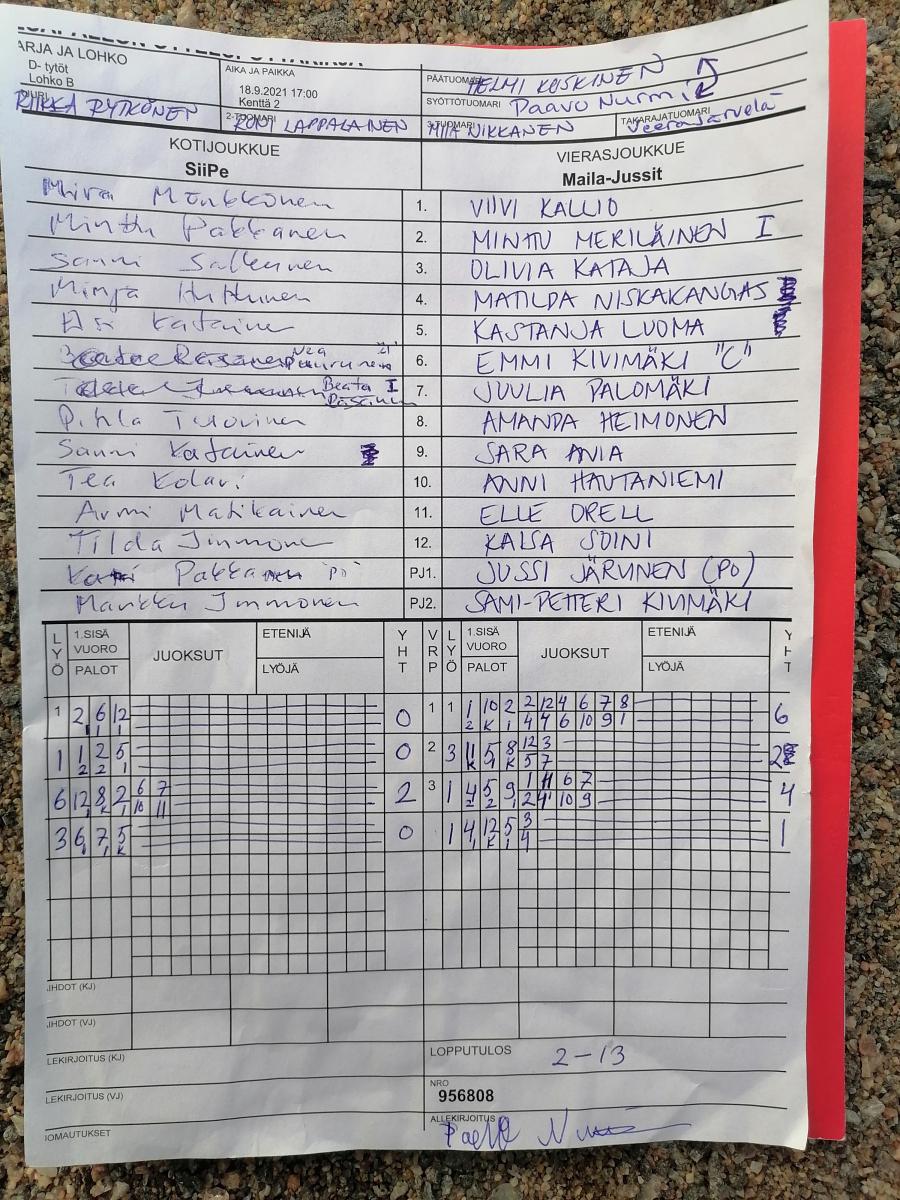 SARJA JA LOHKO
D- tytöt
Lohko B
AIKA JA PAIKKA
18.9.2021 17:00
Kenttä 2
PÄÄTUOMARI HELMI KOSKINEN
SYÖTTÖTUOMARI Paavo Nurmi
RIIKKA RYTKÖNEN
2-TUOMARI RONI LAPPALAINEN
3-TUOMARI MIIA NIKKANEN
TAKARAJATUOMARI Veera Järvelä
KOTIJOUKKUE
SiiPe
VIERASJOUKKUE
Maila-Jussit
1. VIIVI KALLIO
Minttu Pakkanen 2. MINTU MERILÄINEN I
Sanni 3. OLIVIA KATAJA
Minja Huttunen 4. MATILDA NISKAKANGAS
Katainen 5. KASTANJA LUOMA
Nea 6. EMMI KIVIMÄKI "C"
Beata I Räsänen 7. JUULIA PALOMÄKI
Pihla Turovinen 8. AMANDA HEIMONEN
Sanni Katainen 9. SARA ANIA
Tea Kolari 10. ANNI HAUTANIEMI
Armi Matikainen 11. ELLE ORELL
Tilda Immonen 12. KAISA SOINI
Pakkanen PJ1. JUSSI JÄRVINEN (PO)
Markku Immonen PJ2. SAMI-PETTERI KIVIMÄKI
LYÖ 1.SISÄ VUORO PALOT JUOKSUT ETENIJÄ LYÖJÄ YHT VRP LYÖ 1.SISÄ VUORO PALOT JUOKSUT ETENIJÄ LYÖJÄ YHT
1 2 6 12 0 1 1 1 10 2 2 12 4 6 7 8 6
1 1 2 K 1 4 4 6 10 9 1
1 1 2 5 0 2 3 11 5 8 12 3 2
2 2 1 K 1 K 5 7
6 12 8 2 6 7 2 3 1 4 5 9 1 11 6 7 4
1 K 1 10 11 2 2 1 2 4 10 9
3 6 7 5 0 1 4 12 5 3 1
1 1 K 1 K 1 4
LOPPUTULOS 2-13
NRO
956808
ALLEKIRJOITUS